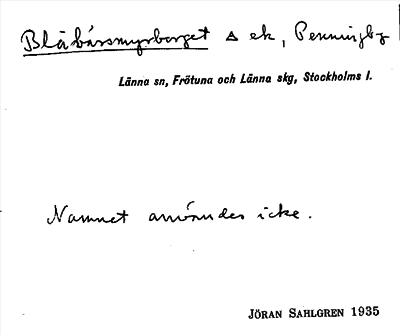 Blåbärsmyrberget △ ek, Penningby
Länna sn, Frötuna och Länna skg, Stockholms l.
Namnet användes icke.
JÖRAN SAHLGREN 1935